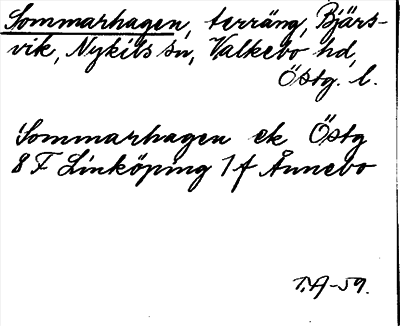 Sommarhagen, terräng, Bjärs-
vik, Nykils sn, Valkebo hd,
Östg. l.
Sommarhagen ek Östg
8 F Linköping 1 f Ånnebo
T.A-59.